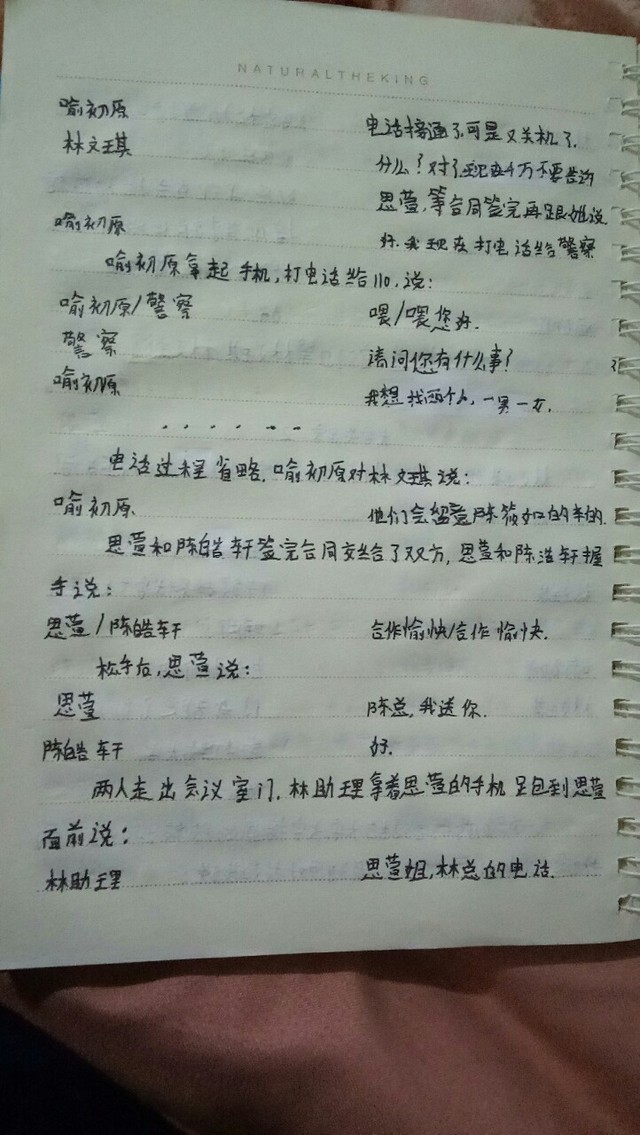 NATURALTHEKING
喻初原 电话接通了,可是又关机了.
林文琪 什么?对了现在千万不要告诉
思萱,等合同签完再跟她说
喻初原 好.我现在打电话给警察
喻初原拿起手机,打电话给110,说:
喻初原/警察 喂/喂您好.
警察 请问您有什么事?
喻初原 我想找两个人,一男一女.
......
电话过程省略.喻初原对林文琪说:
喻初原 他们会留意陈筱如的车的.
思萱和陈皓轩签完合同交给了双方,思萱和陈浩轩握
手说:
思萱/陈皓轩 合作愉快/合作愉快.
松手后,思萱说:
思萱 陈总,我送你.
陈皓轩 好.
两人走出会议室门.林助理拿着思萱的手机跑到思萱
面前说:
林助理 思萱姐,林总的电话.